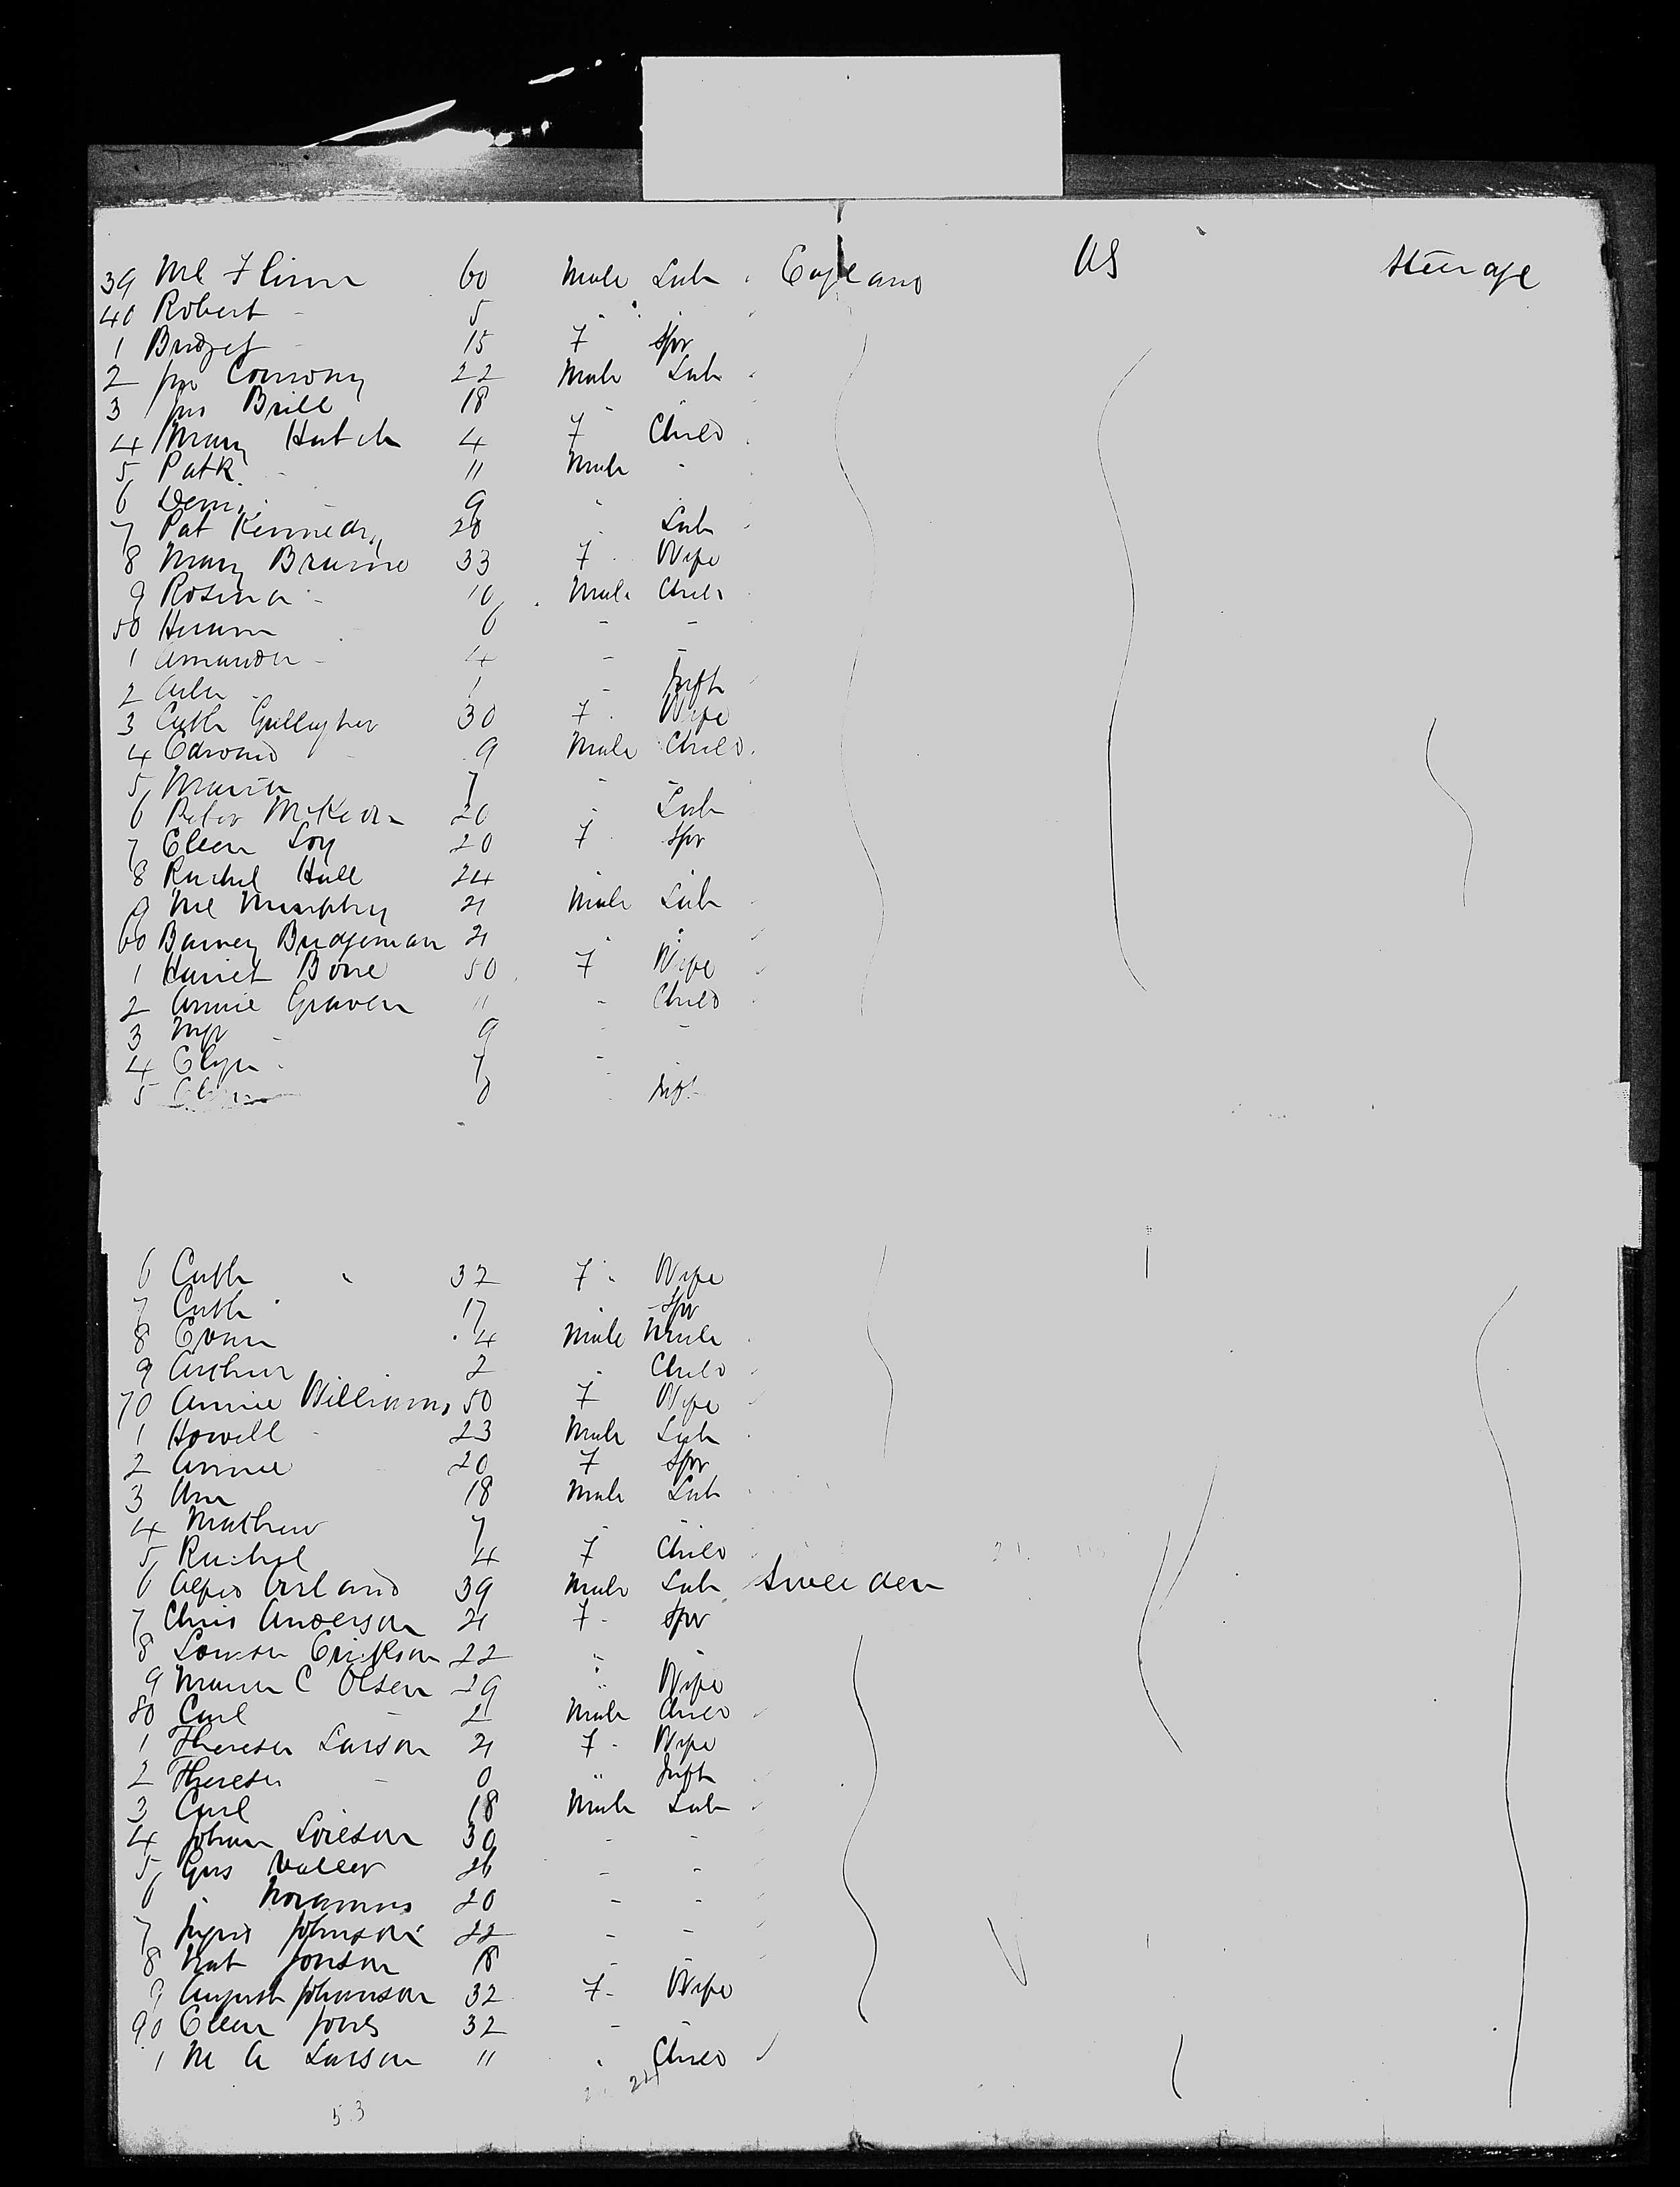 39 Ml Flinn 60 Male Lab England US Steerage
40 Robert - 5 " "
1 Bridget - 15 F Spr
2 Jno Conrony 22 Male Lab
3 Jno Brill 18 " "
4 Mary Hutch 4 F Child
5 Patk - 11 Male "
6 Denis - 9 "
7 Pat Kennedy 28 " Lab
8 Mary Brunno 33 F Wife
9 Rosina - 10 Male Child
50 Hiram 6 - -
1 Amanda - 4 - -
2 1 - Inft
3 Cath Gallagher 30 F Wife
4 Edward - 9 Male Child
5 Maria 7 - -
6 Peter McKeon 20 " Lab
7 Ellen Loy 20 F Spr
8 Rachel Hall 24 " "
9 Ml Murphy 21 Male Lab
60 Barney Bridgeman 21 " "
1 Harriet Bone 50 F Wife
2 Annie Graven 11 - Child
3 9 - -
4 Eliza - 7 -
5 0 Inft
6 Cath " 32 F Wife
7 Cath " 17 Spr
8 Evan 4 Male Male
9 Arthur 2 " Child
70 Annie Williams 50 F Wife
1 Howell - 23 Male Lab
2 Annie 20 F Spr
3 Wm 18 Male Lab
4 Mathew 7 - -
5 Rachel 4 F Child
6 Alfed Arland 39 Male Lab Sweeden
7 Chris Anderson 21 F Spr
8 Louisa Erickson 22 " "
9 Maria C Olsen 29 " Wife
80 Carl - 2 Male Child
1 Theresa Larson 21 F Wife
2 Theresa - 0 " Inft
3 Carl 18 Male Lab
4 Johan 30 - -
5 Gus Valler 26 - -
6 " 20 - -
7 Ingrid Johnson 22 - -
8 Jonson 18 - -
9 August Johanson 32 F Wife
90 Ellen Jones 32 - -
1 M A Larson 11 " Child
53